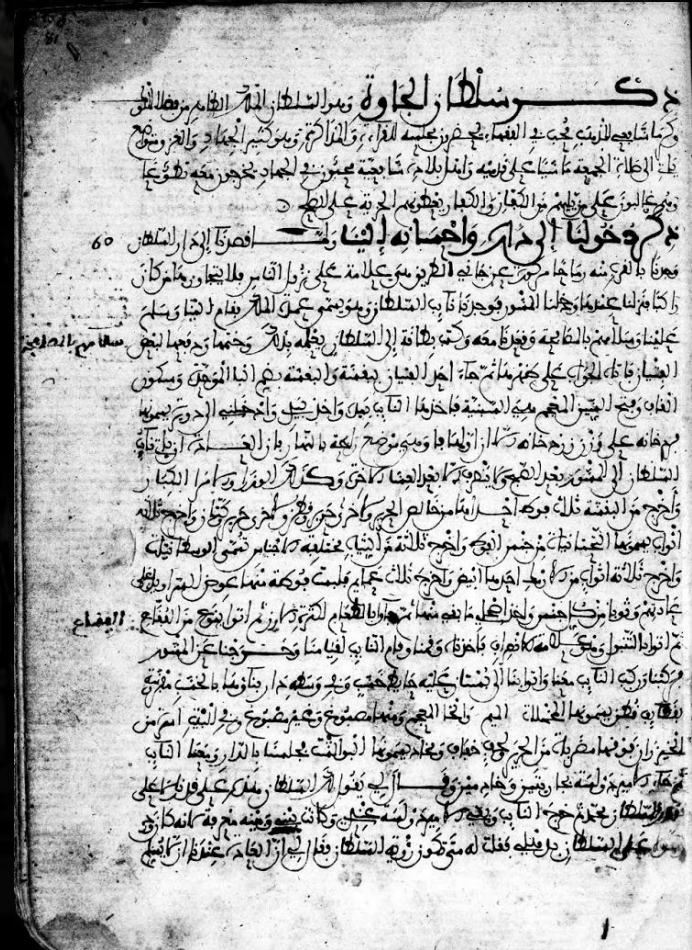 ذكر سلطان الجاوة وهو السلطان الملك الظاهر من فضلاء الملوك
وكرمائهم شافعي المذهب محب في الفقهاء يحضرون مجلسه للقراءة والمذاكرة وهو كثير الجهاد والغزو متواضع
ياتي الى صلاة الجمعة ماشيا على قدميه واهل بلاده شافعية محبون في الجهاد يخرجون معه تطوعا
وهم غالبون على من يليهم من الكفار والكفار يعطونهم الجزية على الصلح
ذكر دخولنا الى داره واحسانه الينا ولما قصدنا الى دار السلطان
60
وجدنا بالقرب منه رماحا مركوزة عن جانبي الطريق هي علامة على نزول الناس فلا يتجاوزها من كان
راكبا فنزلنا عندها ودخلنا المشور فوجدنا نائب السلطان وهو يسمى عمدة الملك فقام الينا وسلم
علينا وسلامهم بالمصافحة وقعدنا معه وكتب بطاقة الى السلطان يعلمه بذلك وختمها ودفعها لبعض
سلامهم بالمصافحة
الفتيان فاتاه الجواب على ظهرها ثم جاء احد الفتيان ببقشة والبقشة بضم الباء الموحدة وسكون
القاف وفتح الشين المعجم هي السبنية فاخذها النائب بيده واخذ بيدي وادخلني الى دويرة يسمونها
فردخانه على وزن زردخانه الا ان اولها فا وهي موضع راحته بالنهار فان العادة ان ياتي نائب
السلطان الى المشور بعد الصبح ولا ينصرف الا بعد العشاء الاخرة وكذلك الوزراء والامرا الكبار
واخرج من البقشة ثلاث فوط احداها من خالص الحرير والاخرى حرير وقطن والاخرى حرير وكتان واخرج ثلاثة
اثواب يسمونها التحتانيات من جنس الفوط واخرج ثلاثة من الثياب مختلفة الاجناس تسمى الوسطانيات
واخرج ثلاثة اثواب من الارمك احدها ابيض واخرج ثلاث عمايم فلبست فوطة منها عوض السراويل على
عادتهم وثوبا من كل جنس واخذ اصحابي ما بقي منها ثم جاءوا بالطعام اكثره الارز ثم اتوا بنوع من الفقاع
الفقاع
ثم اتوا بالتنبول وهو علامة الانصراف فاخذناه وقمنا وقام النائب لقيامنا وخرجنا عن المشور
فركبنا وركب النائب معنا واتوا بنا الى بستان عليه حائط خشب وفي وسطه دار بناؤها بالخشب مفروشة
بقطائف قطن يسمونها المخملات الميم والخا المعجم ومنها مصبوغ وغير مصبوغ وفي البيت اسرة من
الخيزران فوقها مضربات من الحرير ولحف خفاف ومخاد يسمونها البوالشت فجلسنا بالدار ومعنا النائب
ثم جاء الامير دولسة بجاريتين وخادمين وقال لي يقول لك السلطان هذه على قدرنا لا على
قدر السلطان محمد ثم خرج النائب وبقي الامير دولسة عندي وكانت بيني وبينه معرفة لانه كان ورد
رسولا على السلطان بدهلي فقلت له متى تكون رؤية السلطان فقال لي ان العادة عندنا ان لا يسلم